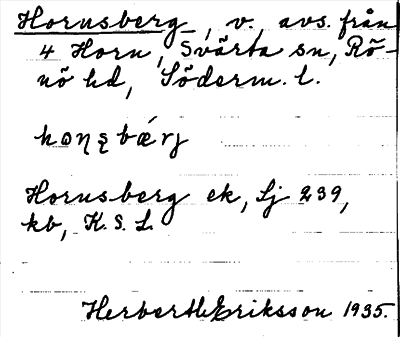 Hornsberg, v., avs. från
4 Horn, Svärta sn, Rö-
nö hd, Söderm. l.
hoɳʂbǽrj
Hornsberg ek, Lj 239,
kb, K. S. L.
Herbert Eriksson 1935.